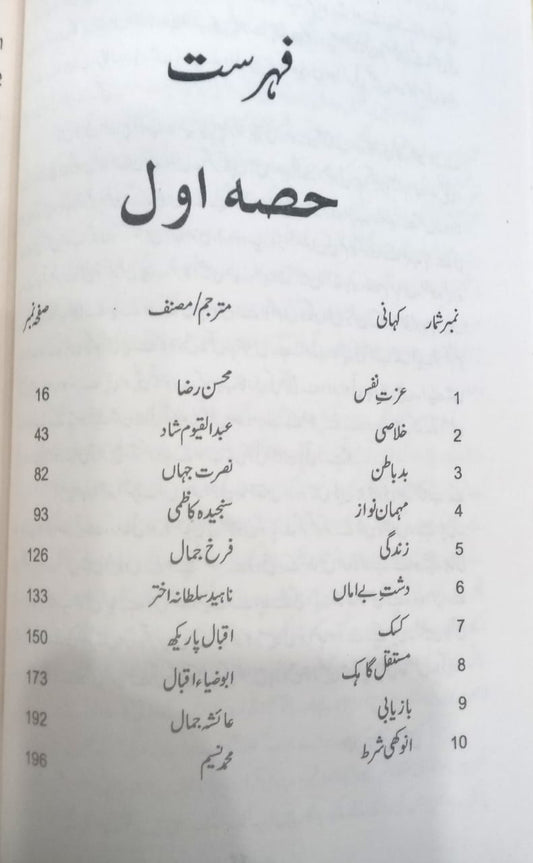 فہرست
حصہ اول
نمبر شمار کہانی مترجم/مصنف صفحہ نمبر
1 عزتِ نفس محسن رضا 16
2 خلاصی عبدالقیوم شاد 43
3 بد باطن نصرت جہاں 82
4 مہمان نواز سنجیدہ کاظمی 93
5 زندگی فرح جمال 126
6 دشتِ بے اماں ناہید سلطانہ اختر 133
7 کسک اقبال پاریکھ 150
8 مستقل گاہک ابوضیاء اقبال 173
9 بازیابی عائشہ جمال 192
10 انوکھی شرط محمد نسیم 196